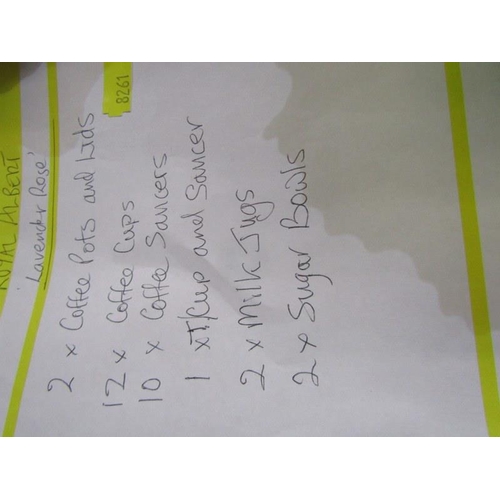 ROYAL ALBERT
'Lavender Rose'
8261
2 x Coffee Pots and Lids
12 x Coffee Cups
10 x Coffee Saucers
1 x T/Cup and Saucer
2 x Milk Jugs
2 x Sugar Bowls